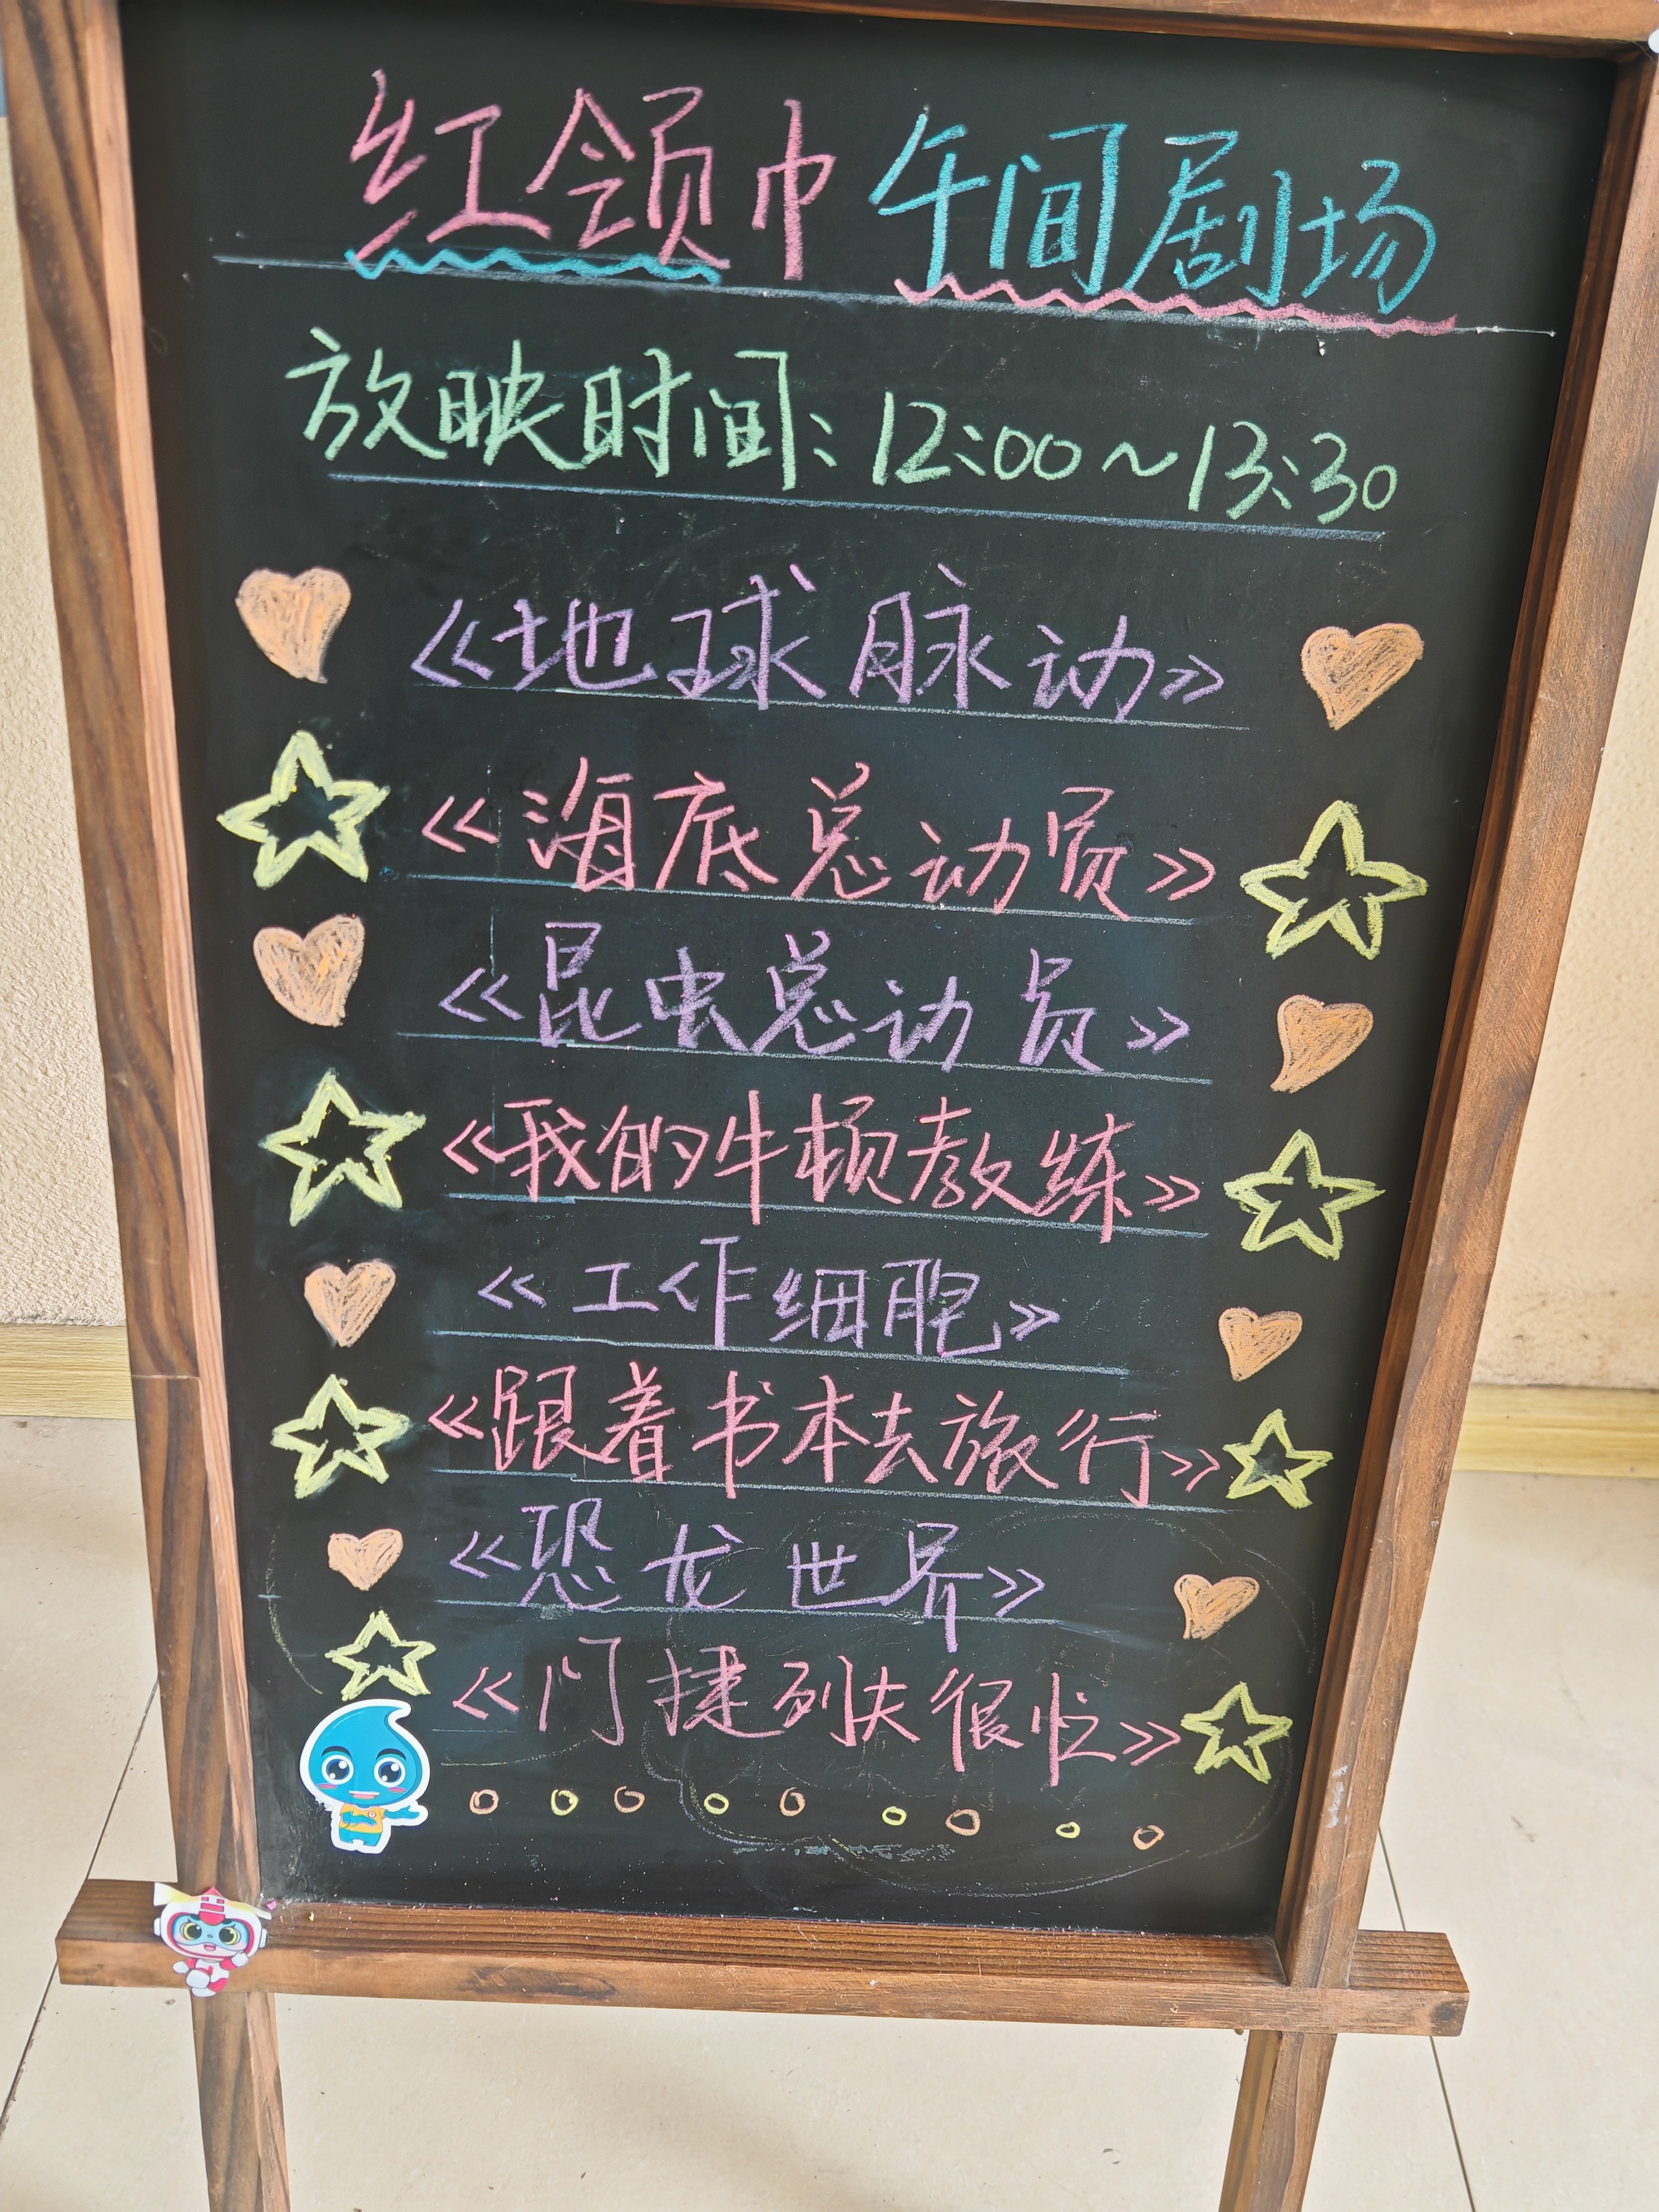 红领巾午间剧场
放映时间:12:00~13:30
《地球脉动》
《海底总动员》
《昆虫总动员》
《我的牛顿教练》
《工作细胞》
《跟着书本去旅行》
《恐龙世界》
《门捷列夫很忙》